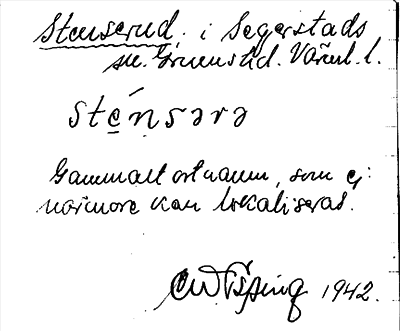 Stenserud i Segerstads
sn. Grums hd. Värml. l.
sténsərə
Gammalt ortnamn, som ej
närmare kan lokaliseras.
1942.